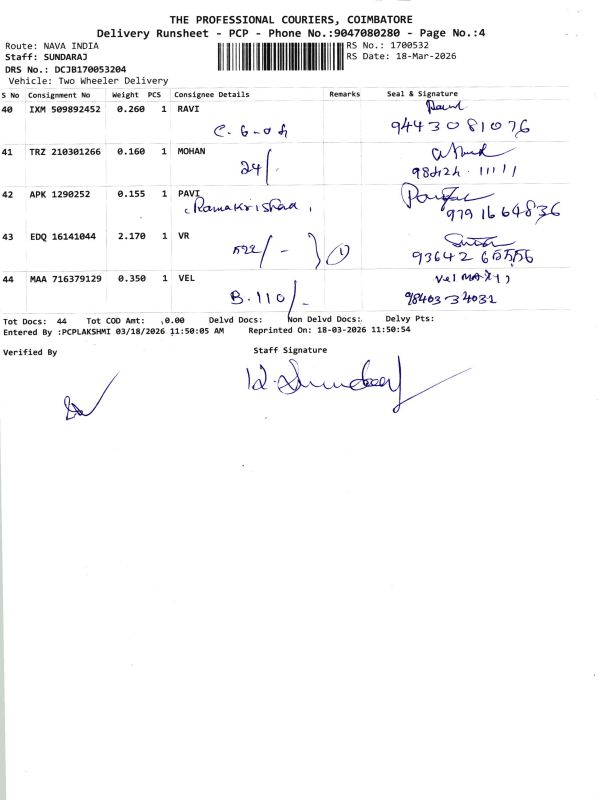 THE PROFESSIONAL COURIERS, COIMBATORE
Delivery Runsheet - PCP - Phone No.:9047080280 - Page No.:4
Route: NAVA INDIA
RS No.: 1700532
Staff: SUNDARAJ
RS Date: 18-Mar-2026
DRS No.: DCJB170053204
Vehicle: Two Wheeler Delivery
S No Consignment No Weight PCS Consignee Details Remarks Seal & Signature
40 IXM 509892452 0.260 1 RAVI
9443081076
41 TRZ 210301266 0.160 1 MOHAN
24/. 98424 11111
42 APK 1290252 0.155 1 PAVI
Ramakrishna, 9791664836
43 EDQ 16141044 2.170 1 VR
522/- 1
44 MAA 716379129 0.350 1 VEL
B.110/- 98403-34031
Tot Docs: 44 Tot COD Amt: ,0.00 Delvd Docs: Non Delvd Docs: Delvy Pts:
Entered By :PCPLAKSHMI 03/18/2026 11:50:05 AM Reprinted On: 18-03-2026 11:50:54
Verified By Staff Signature